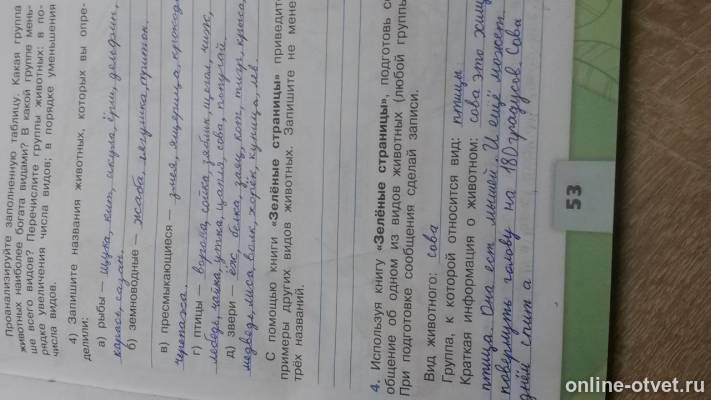 Проанализируйте заполненную таблицу. Какая группа
животных наиболее богата видами? В какой группе мень-
ше всего видов? Перечислите группы животных: в по-
рядке увеличения числа видов; в порядке уменьшения
числа видов.
4) Запишите названия животных, которых вы опре-
делили:
а) рыбы — щука, кит, акула, ёрш, дельфин,
карась, сазан.
б) земноводные — жаба, лягушка, тритон.
в) пресмыкающиеся — змея, ящерица, крокоди
черепаха.
г) птицы — ворона, сойка, зяблик, щегол, чиж,
лебедь, чайка, утка, цапля, сова, попугай.
д) звери — ёж, белка, заяц, кот, тигр, крыса,
медведь, лиса, волк, хорёк, куница, лев.
С помощью книги «Зелёные страницы» приведите
примеры других видов животных. Запишите не мене
трёх названий.
4. Используя книгу «Зелёные страницы», подготовь со
общение об одном из видов животных (любой группы
При подготовке сообщения сделай записи.
Вид животного: сова
Группа, к которой относится вид: птицы
Краткая информация о животном: сова это хищ
птица. Она ест мышей. И ещё может
повернуть голову на 180 градусов. Сова
днём спит а
53
online-otvet.ru